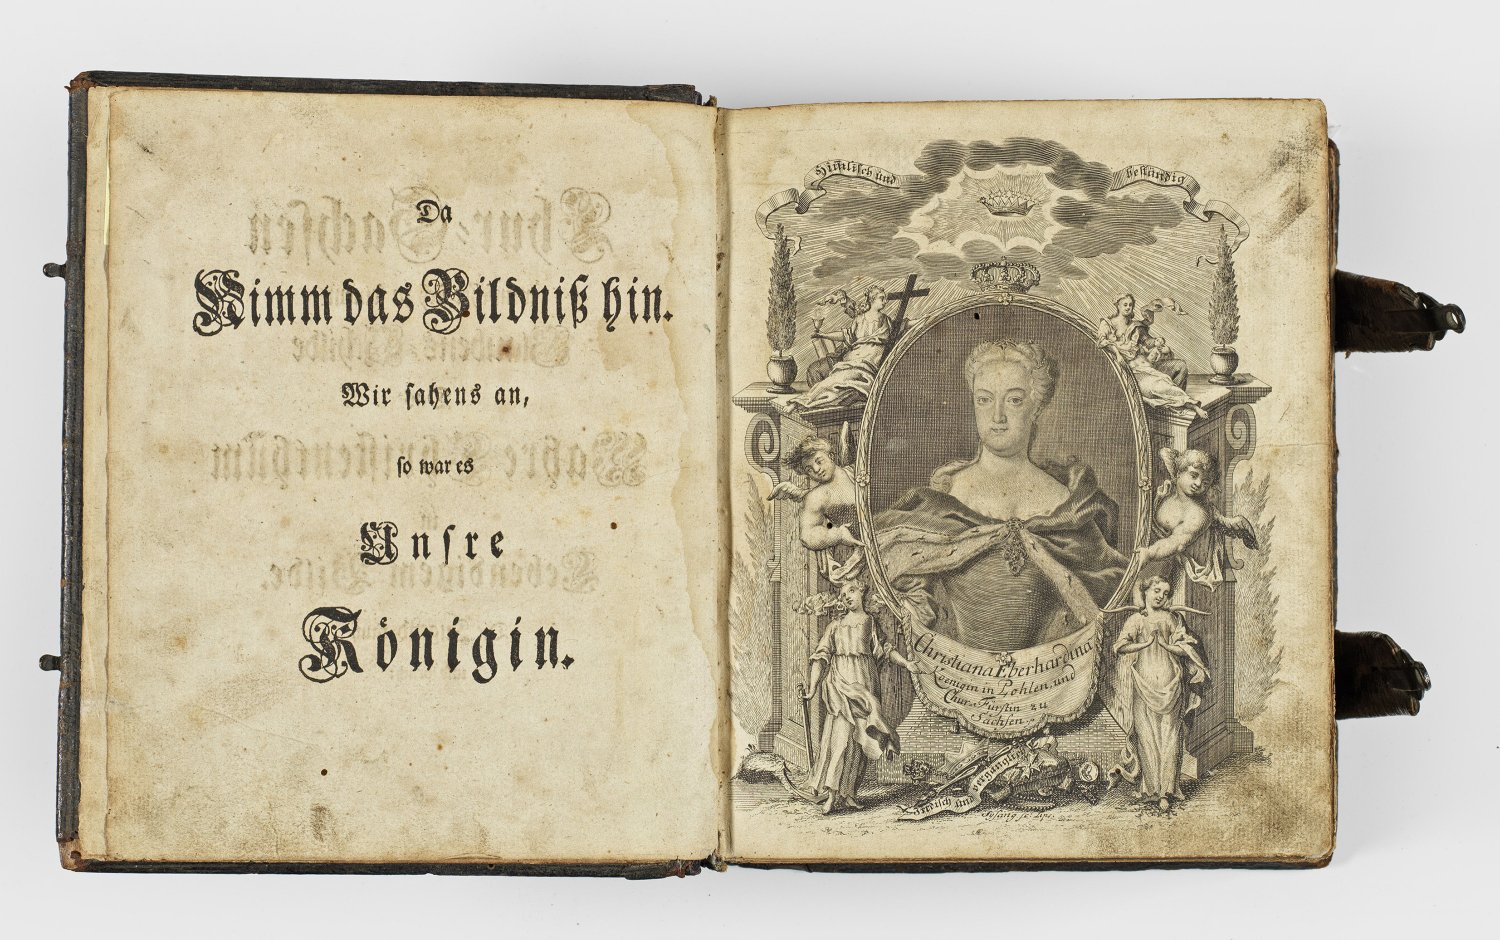 Da
Nimm das Bildniß hin.
Wir sahens an,
so war es
Unsre
Königin.
Him̄lisch und
beständig
Christiana Eberhardina
Koenigin in Pohlen, und
Chur-Fürstin zu
Sachsen.
Irrdisch und vergänglich
Sysang sc. Lips.